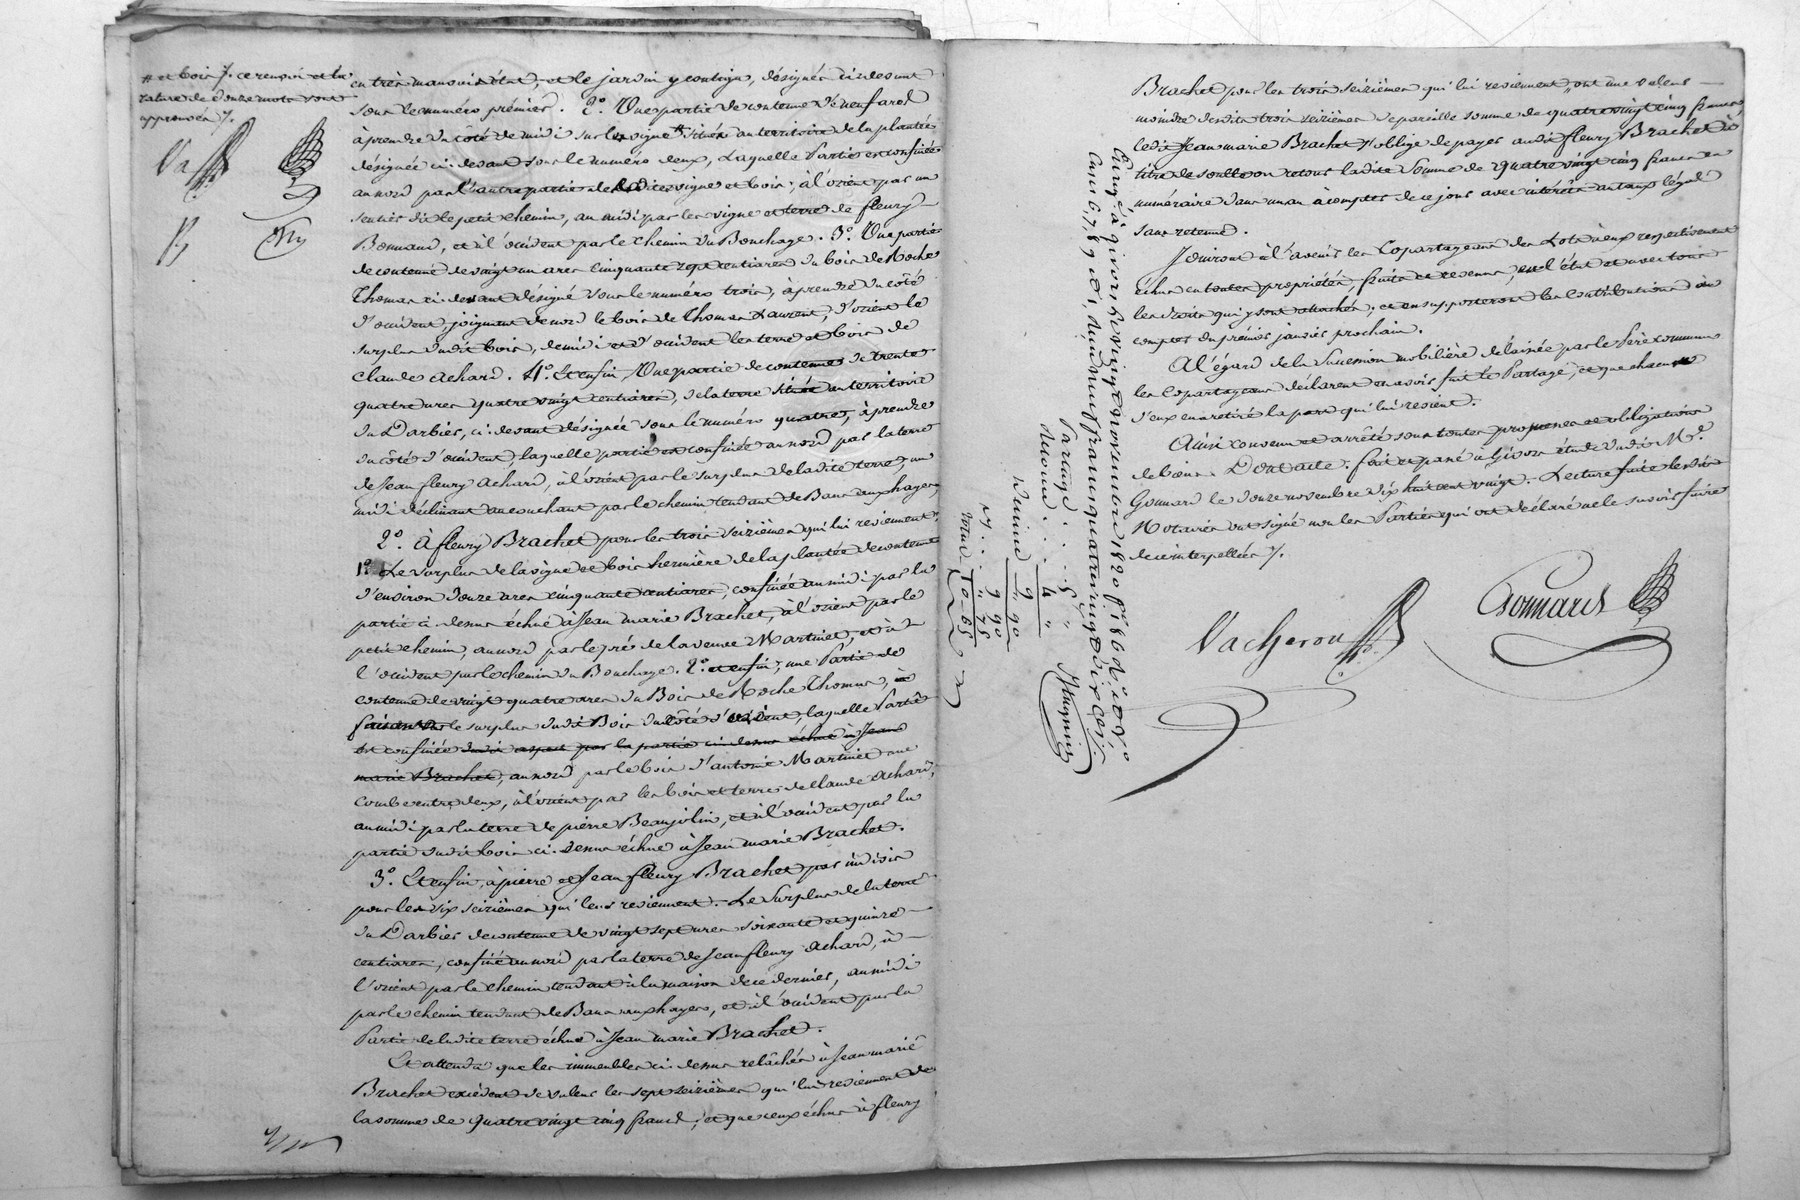 # et bois /. ce renvoi et la
rature de douze mots sont
approuvés /.
en très mauvais état, et le jardin y contigu, désignés ci devant
sous le numéro prémier. 2.° Une partie de contenue de neuf ares
à prendre du côté de midi sur la vigne # située au territoire de la plantée
désignée ci devant sous le numéro deux, Laquelle Partie est confinée
au nord par l'autre partie de ladite vigne et bois, à l'orient par un
sentier dit le petit chemin, au midi par les vigne et terre de fleury
Bonnand, et à l'occident par le chemin du Bouchage. 3.° Une partie
de contenue de vingt un ares cinquante sept centiares du bois de Roche
Thomas ci devant désigné sous le numéro trois, à prendre du côté
d'occident, joignant de nord le bois de Thomas Laurent, d'orient le
surplus dudit bois, de midi et d'occident les terre et bois de
Claude Achard. 4.° Et enfin, Une partie de contenue de trente
quatre ares quatre vingt centiares, de la terre située au territoire
du Darbier, ci devant désignée sous le numéro quatre, à prendre
du côté d'occident, laquelle partie est confinée au nord par la terre
de Jean fleury Achard, à l'orient par le surplus de ladite terre, au
midi déclinant au couchant par le chemin tendant de Bans aux hayes,
2.° À fleury Brachet pour les trois seizièmes qui lui reviennent,
1.° Le surplus de la vigne et bois hermière de la plantée de contenue
d'environ douze ares cinquante centiares, confinée au midi par la
partie ci dessus échue à Jean marie Brachet, à l'orient par le
petit chemin, au nord par le pré de la veuve Martinet, et à
l'occident par le chemin du Bouchage. 2.° et enfin, une Partie de
contenue de vingt quatre ares du Bois de Roche Thomas,
faisant le surplus dudit Bois du côté d'orient, laquelle Partie
est confinée dudit aspect par la partie ci dessus échue à Jean
marie Brachet, au nord par le bois d'antoine Martinet une
combe entre deux, à l'orient par les bois et terres de Claude Achard,
au midi par la terre de pierre Beaujolin, et à l'occident par la
partie dudit bois ci dessus échue à Jean marie Brachet.
3.° Et enfin, à pierre et Jean fleury Brachet par indivis
pour les six seizièmes qui leur reviennent. Le Surplus de la terre
du Darbier de contenue de vingt sept ares soixante et quinze
centiares, confiné au nord par la terre de Jean fleury Achard, à
l'orient par le chemin tendant à la maison de ce dernier, au midi
par le chemin tendant de Bans aux hayes, et à l'occident par la
Partie de ladite terre échue à Jean marie Brachet.
Et attendu que les immeubles ci dessus relâchés à Jean marie
Brachet excèdent de valeur les sept seizièmes qui lui reviennent de
la somme de quatre vingt cinq francs, et que ceux échus à fleury
Brachet pour les trois seizièmes qui lui reviennent, ont une valeur
moindre desdits trois seizièmes de pareille somme de quatre vingt cinq francs,
ledit Jean marie Brachet s'oblige de payer audit fleury Brachet à
titre de soulte ou retour ladite Somme de quatre vingt cinq francs en
numéraire dans un an à compter de ce jour avec intérêts au taux légal
sans retenue.
Jouiront à l'avenir les Copartageans des Lots à eux respectivement
échus en toutes propriétés, fruits et revenus, en l'état et avec tous
les droits qui y sont attachés, et en supporteront les Contributions à
compter du prémier janvier prochain.
À l'égard de la Succession mobilière délaissée par le Père commun
les Copartageans déclarent en avoir fait le Partage, et que chacun
d'eux en a retiré la part qui lui revient.
Ainsi convenu et arrêté sous toutes promesses et obligations
de biens. Dont acte. fait et passé à Givors étude dudit M.e
Gonnard le douze novembre dix huit cent vingt. Lecture faite lesdits
Notaires ont signé non les Parties qui ont déclaré ne le savoir faire
de ce interpellées /.
Vacheron
Gonnard
Enrg.é à givors le vingt novembre 1820 f.°
Cases 6, 7, 8, 9 et 1, du dix neuf francs quatre vingt dix cen.
Partage . . . 5 "
Retour . . . 4 "
9 90
9 90
" 75
10 65